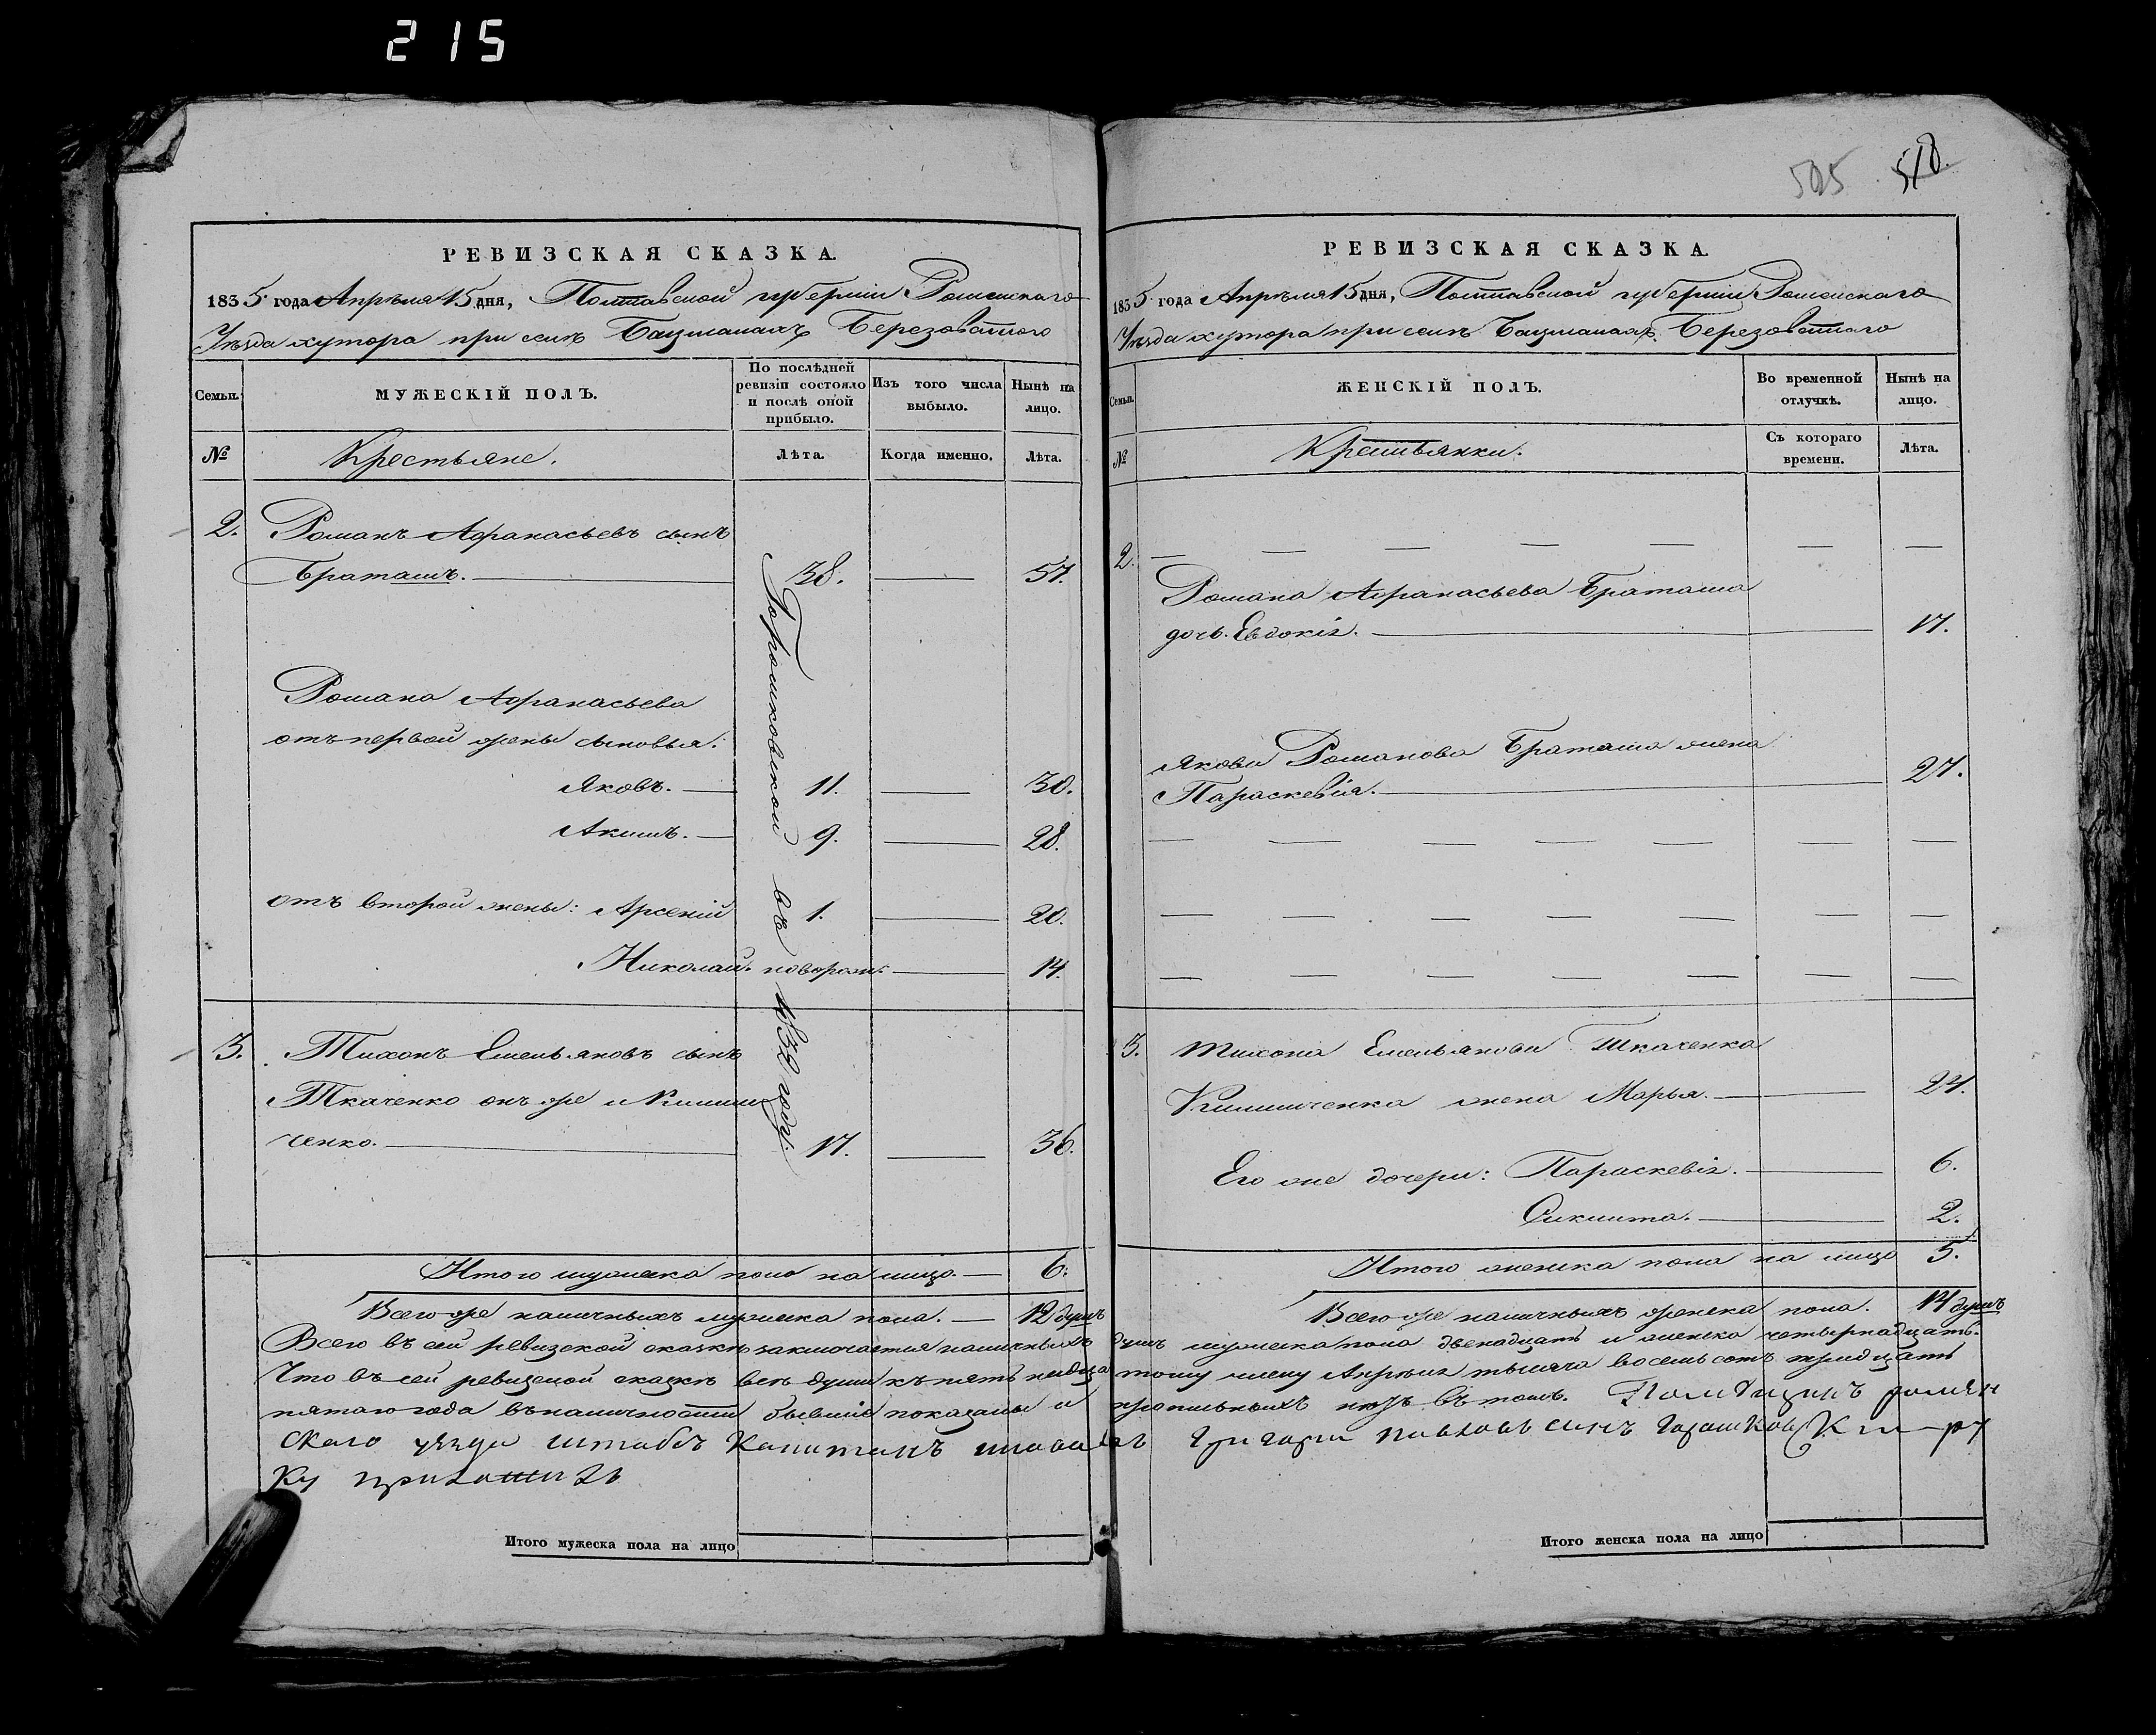 215
505 518.
РЕВИЗСКАЯ СКАЗКА.
1835 года Апрѣля 15 дня, Полтавской губерніи Роменскаго
Уѣзда хутора при селѣ Бацманахъ Березоватого
Семьи.
МУЖЕСКІЙ ПОЛЪ.
По послѣдней ревизіи состояло и послѣ оной прибыло.
Изъ того числа выбыло.
Нынѣ на лицо.
№
Крестьяне.
Лѣта.
Когда именно.
Лѣта.
2. Романъ Афанасьевъ сынъ
Браташъ. 38. 57.
Романа Афанасьева
отъ первой жены сыновья:
Яковъ. 11. 30.
Акимъ. 9. 28.
отъ второй жены: Арсеній 1. 20.
Николай. новорож: 14.
въ 1832 году.
3. Тихонъ Емельяновъ сынъ
Ткаченко онъ же и Клими
ченко. 17. 36.
Итого мужеска пола на лицо. 6.
Всего же наличныхъ мужеска пола. 12 душъ
РЕВИЗСКАЯ СКАЗКА.
1835 года Апрѣля 15 дня, Полтавской губерніи Роменскаго
Уѣзда хутора при селѣ Бацманахъ Березоватого
Семьи.
ЖЕНСКІЙ ПОЛЪ.
Во временной отлучкѣ.
Нынѣ на лицо.
№
Крестьянки.
Съ котораго времени.
Лѣта.
2.
Романа Афанасьева Браташа
дочь Евдокія. 17.
Якова Романова Браташа жена
Параскевія. 27.
3. Тихона Емельянова Ткаченка
Климиченка жена Марья. 27.
Его же дочери: Параскевія. 6.
2.
Итого женска пола на лицо 5.
Всего же наличныхъ женска пола. 14 душъ
Всего въ сей ревизской сказкѣ заключается наличныхъ душъ мужеска пола двенадцать и женска четырнадцать.
Что въ сей ревизской сказкѣ всѣ души къ пятьнадцатому числу Апрѣля тысяча восемьсотъ тридцать
пятаго года въ наличности бывшіе показаны и прописныхъ нѣтъ въ томъ. Помещикъ ромен
скаго уѣзда штабсъ Капитанъ Григорій Павловъ синъ Горашковскій ру
ку приложилъ
Итого мужеска пола на лицо
Итого женска пола на лицо